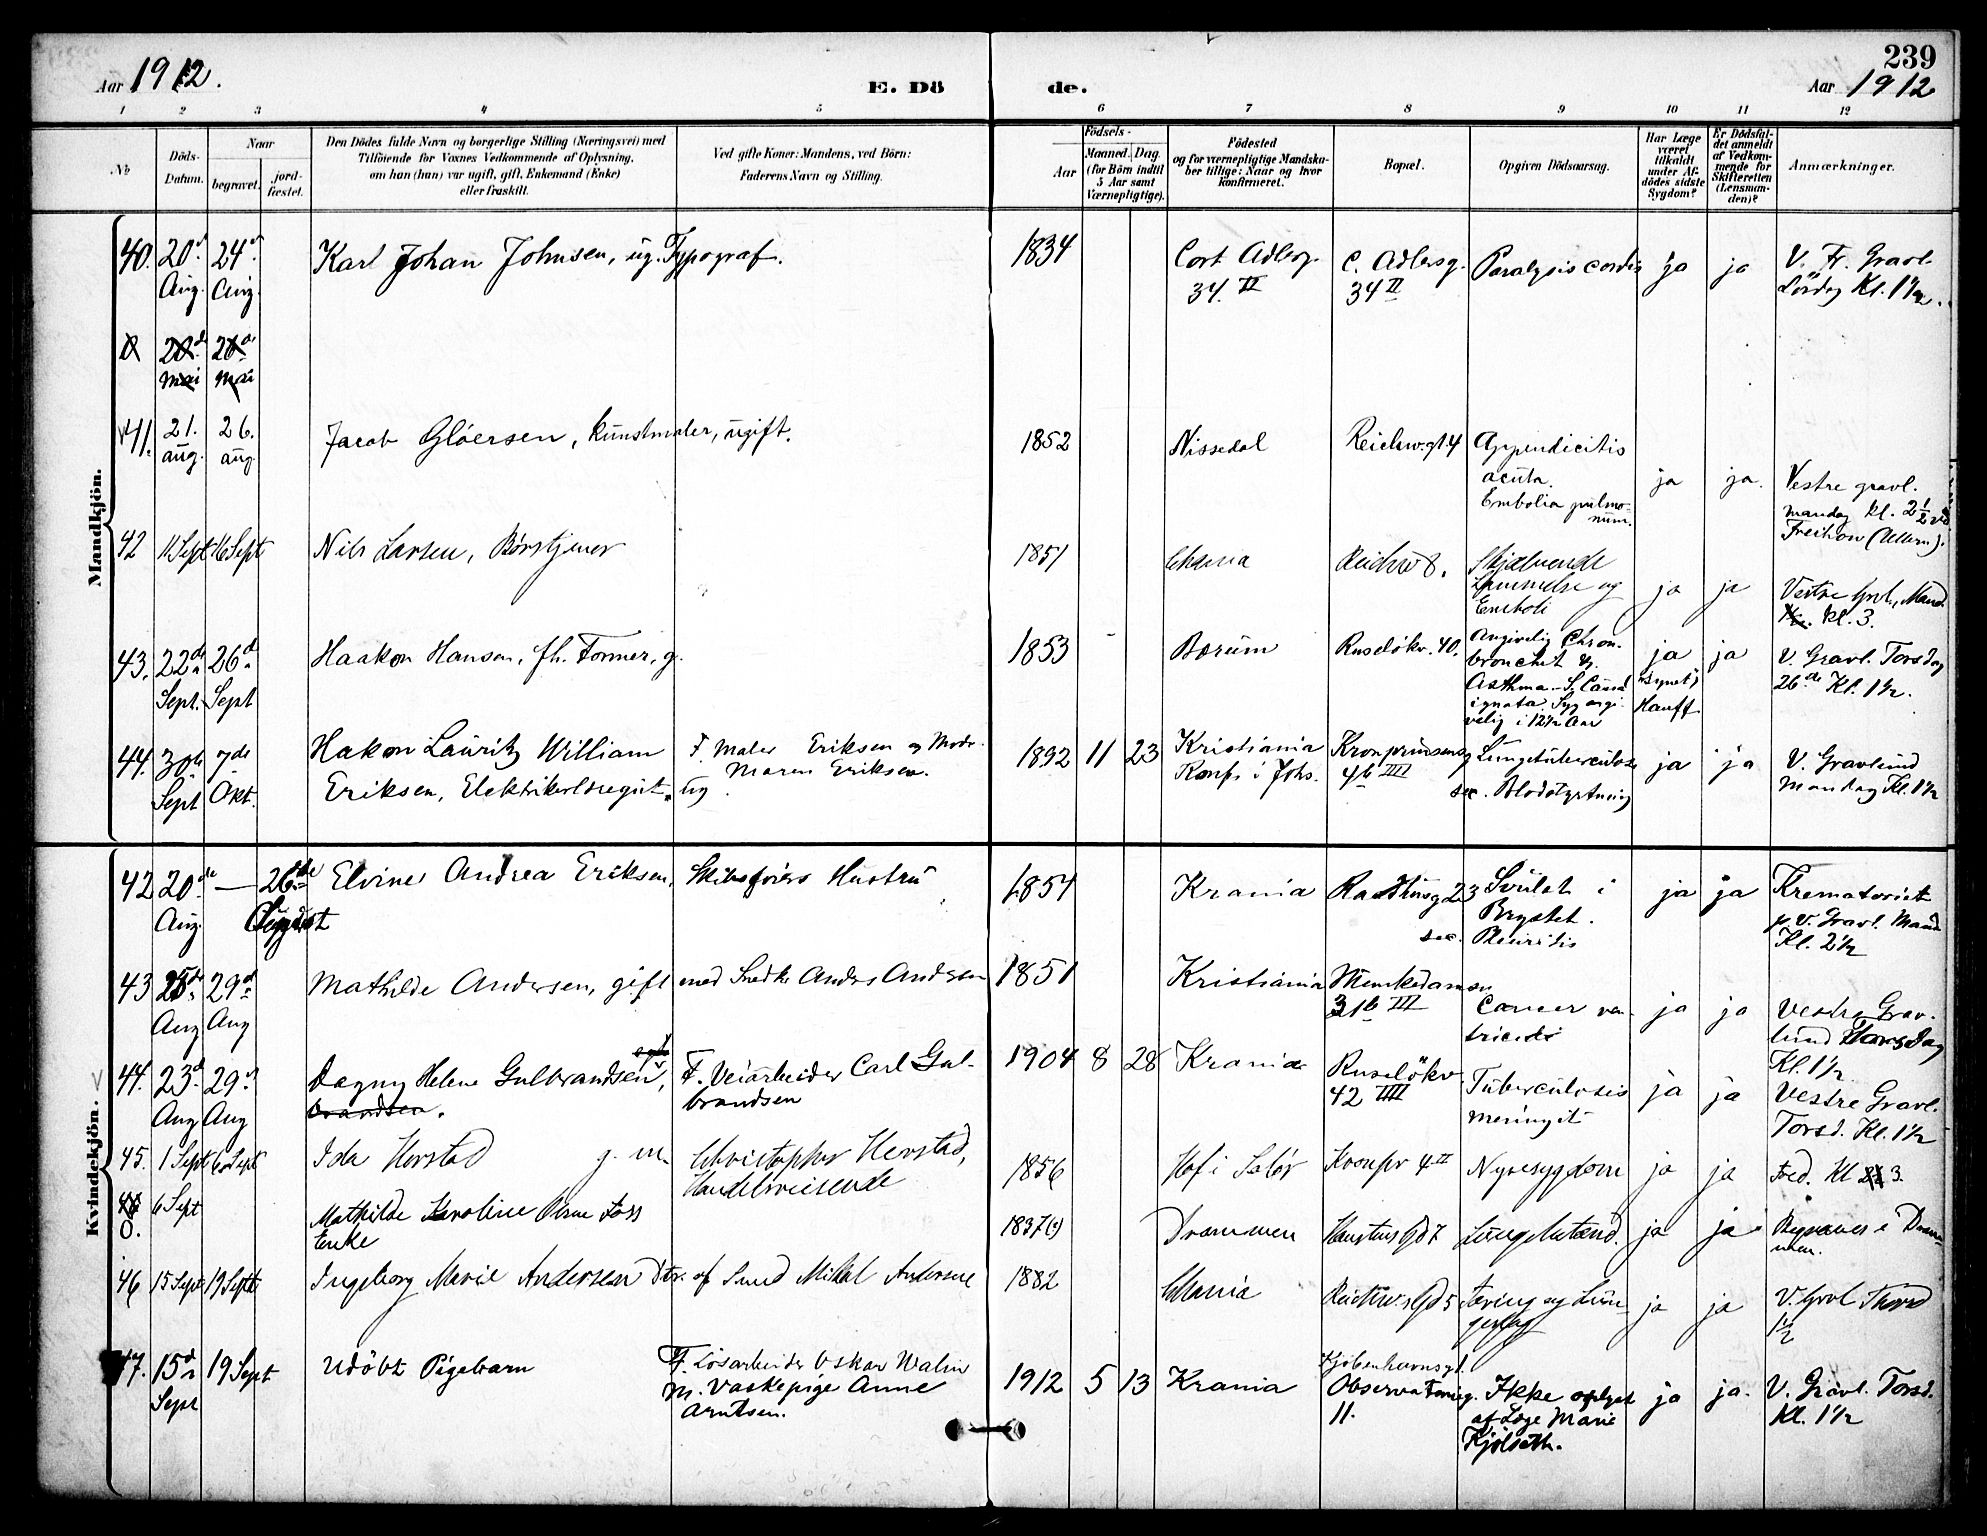 239
Aar 1912. E. Dö de. Aar 1912
1 2 3 4 5 6 7 8 9 10 11 12
No
Döds-Datum.
Naar
begravet.
jord-fæstet.
Den Dödes fulde Navn og borgerlige Stilling (Næringsvei) med
Tilföiende for Voxnes Vedkommende af Oplysning,
om han (hun) var ugift, gift, Enkemand (Enke)
eller fraskilt.
Ved gifte Koner: Mandens, ved Börn:
Faderens Navn og Stilling.
Födsels-
Aar
Maaned. Dag.
(for Börn indtil
5 Aar samt
Værnepligtige).
Födested
og for værnepligtige Mandska-
ber tillige: Naar og hvor
konfirmeret.
Bopæl.
Opgiven Dödsaarsag.
Har Læge
været
tilkaldt
under Af-
dödes sidste
Sygdom?
Er Dödsfal-
det anmeldt
af Vedkom-
mende for
Skifteretten
(Lensman-
den)?
Anmærkninger.
Mandkjön.
40. 20d Aug. 24d Aug. Karl Johan Johnsen, ug. Typograf. 1834 Cort Adlerg. 34 II C. Adlersg. 34 II Paralysis cordis ja ja V. Fr. Gravl. Lördag Kl. 1 1/2.
41. 21. aug. 26. aug. Jacob Glöersen, kunstmaler, ugift. 1852 Nissedal Reichw.gt. 4 Appendicitis acuta. Embolia pulmonum. ja ja. Vestre gravl. mandag kl. 2 1/2 ved Freihow (Ullern).
42 11 Sept 16 Sept Nils Larsen, Börstjener 1851 Chania Reichw 8. Skjælvende Lammelse og Emboli ja ja Vestre Grvl., Mand. Kl. 3.
43. 22de Sept. 26d Sept Haakon Hansen, fh. Former, g. 1853 - Bærum Ruselökv. 40. Angivelig Chron. bronchit & Asthma. Syg angivelig i 12 1/2 Aar ja Hauff ja V. Gravl. Torsdag 26de Kl. 1 1/2.
44. 30te Sept 7de Okt. Hakon Lauritz William Eriksen, Elektriker F. Maler Eriksen og Moder Maren Eriksen. ug. 1892 11 23 Kristiania Konf. i Johs. Kronprinsensg 46 IIII Lungetuberculose sec. Blodstyrtning ja ja V. Gravlund Mandag Kl. 1 1/2
Kvindekjön.
42 20de Aug. — 26de August Elvine Andrea Eriksen, Skibsförers Hustru 1854 Krania Raadhusg 23 Svulst i Brystet. sec. Pleuritis ja ja Krematoriet p. V. Gravl. Mand Kl. 2 1/2
43 25de Aug 29d Aug Mathilde Andersen, gift med Snedk Anders Andersen 1851 Kristiania Munkedamsv 31b III Cancer ventriculi ja ja Vestre Gravlund Torsdag Kl. 1 1/2
44. 23d Aug 29d Aug Dagny Helene Gulbrandsen, brandsen. F. Veiarbeider Carl Gulbrandsen 1904 8 28 Krania Ruselökv. 42 IIII Tuberculosis meningit ja ja Vestre Gravl. Torsd. Kl. 1 1/2
45. 1 Sept 6 Sept Ida Herstad g. m. Christopher Herstad, Handelsreisende 1856 Hof i Solör Kronpr 4 II Nyresygdom ja ja Fred. Kl 3.
0. 6 Sept Mathilde Karoline Foss Enke 1837(?) Drammen Lungebetænd. ja ja Begraves i Drammen.
46 15 Sept 19 Sept Ingeborg Marie Andersen Dtr. af Smed Mikal Andersen 1882 Chania Reichw.s Gd 5 Tæring og Lun- ja ja V. Grvl Thorsd 1 1/2
47. 15d Sept 19 Sept Udöbt Pigebarn F. Lösarbeider Oskar Walin M. Vaskepige Anne Arntsen. 1912 5 13 Krania Kjöbenhavnsgt. Observatorieg. 11. Ikke oplyst af Læge Marie Kjölseth. ja ja. V. Gravl. Torsd. Kl. 1 1/2